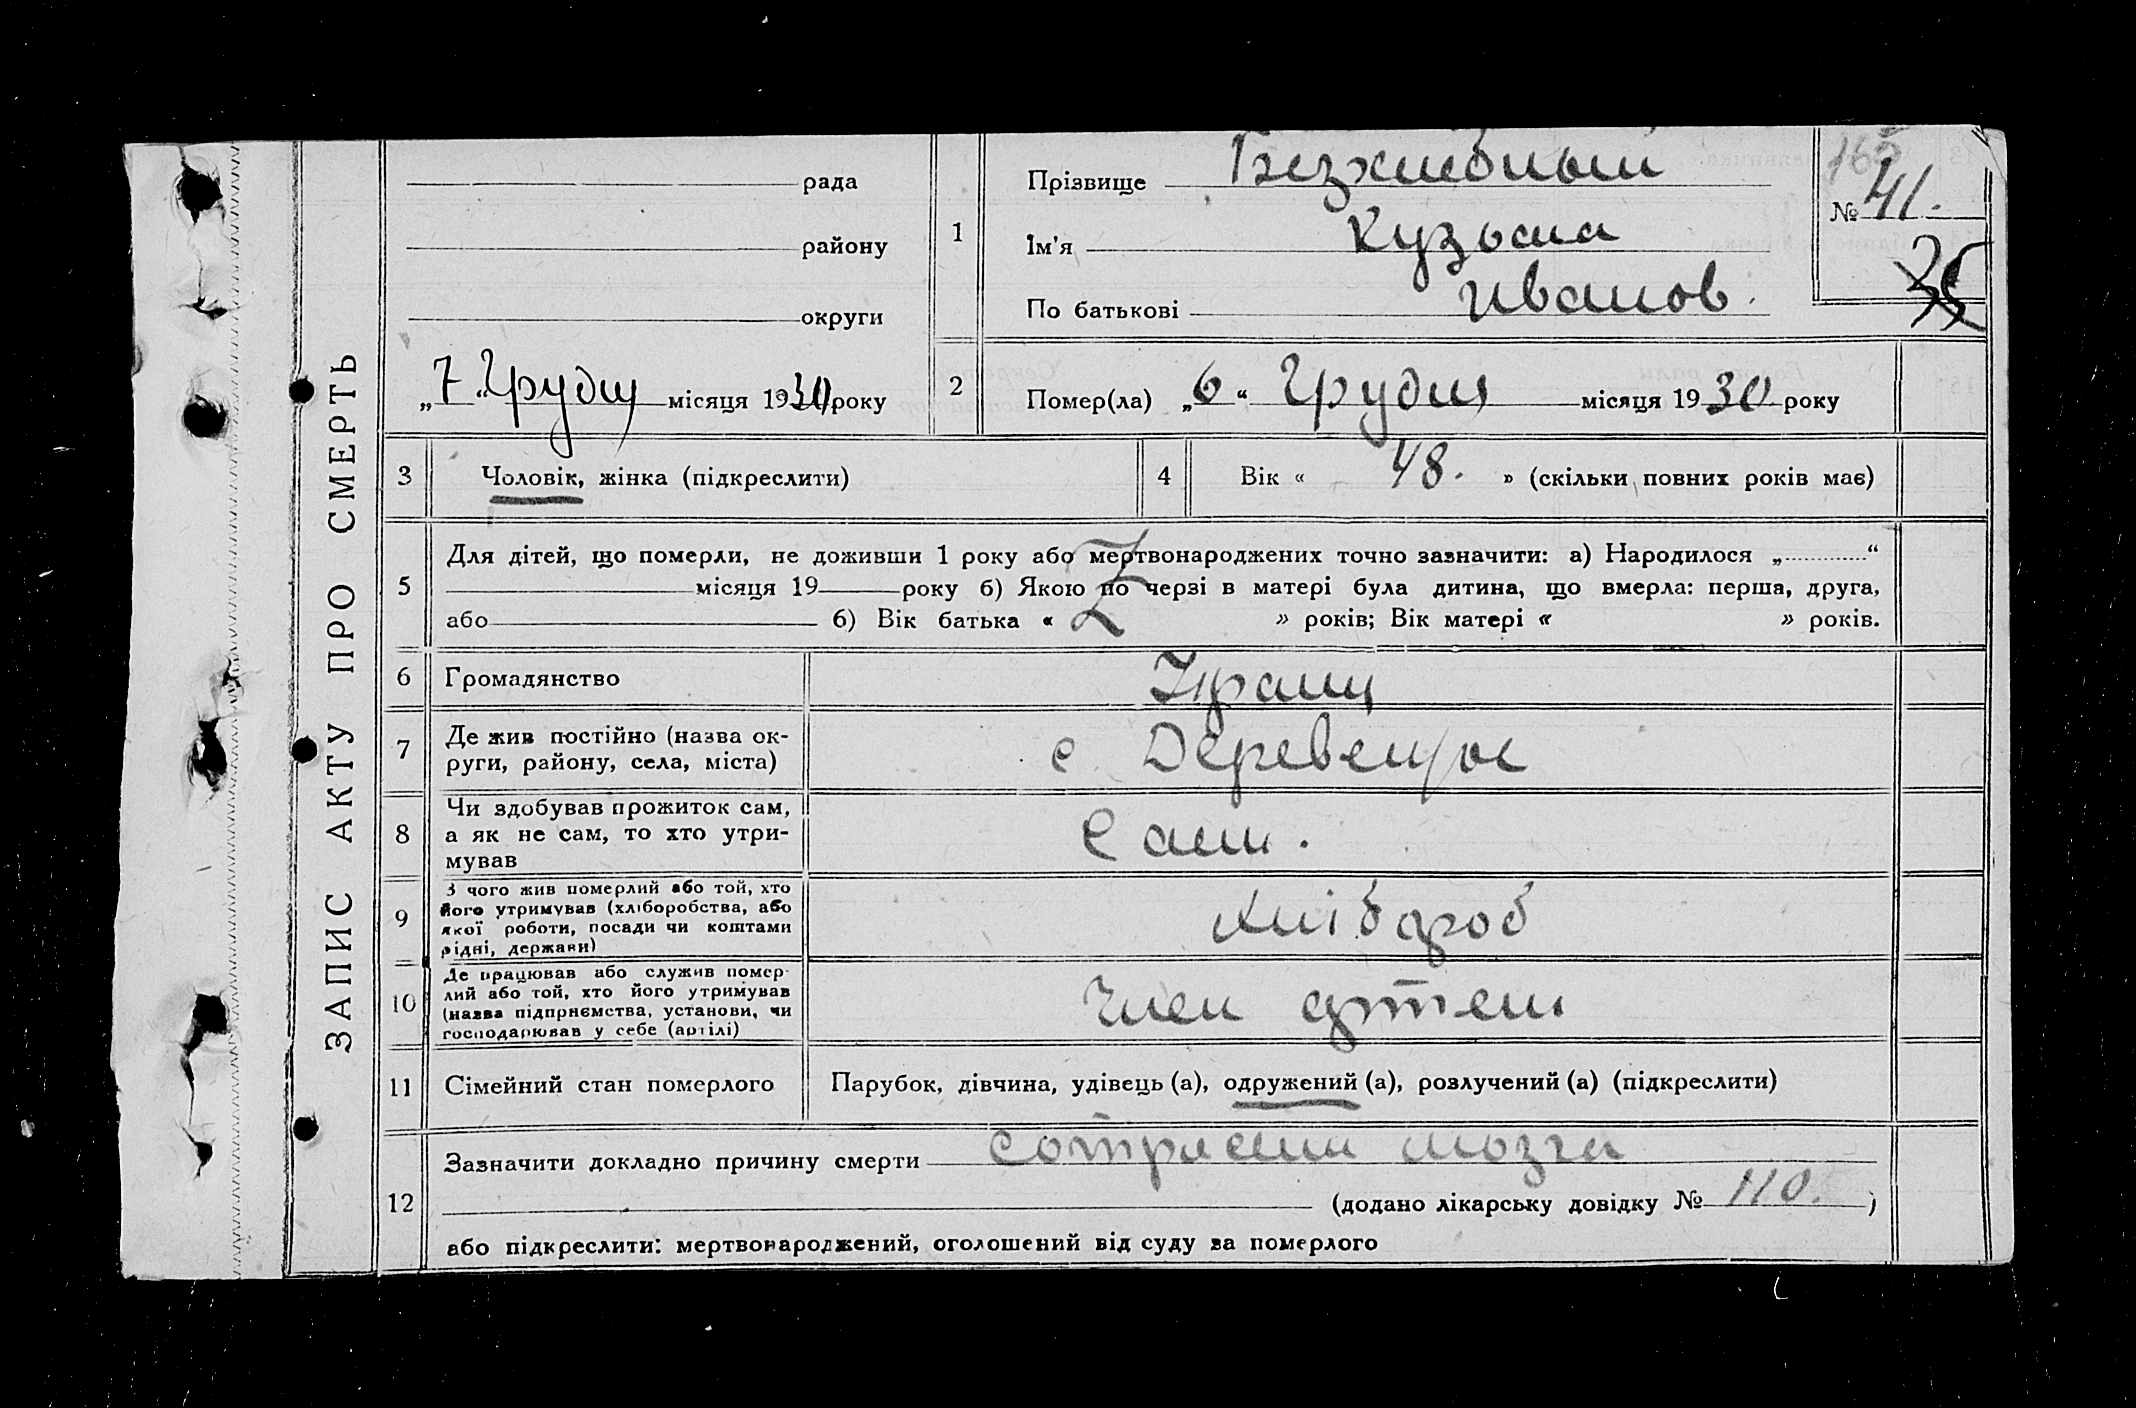 ЗАПИС АКТУ ПРО СМЕРТЬ
рада
району
округи
„7“ Грудня місяця 1930 року
1
Прізвище Безхлебный
Ім'я Кузьма
По батькові Иванов.
№ 41.
165
35
2
Помер(ла) „6“ Грудня місяця 1930 року
3
Чоловік, жінка (підкреслити)
4
Вік « 48. » (скільки повних років має)
5
Для дітей, що померли, не доживши 1 року або мертвонароджених точно зазначити: а) Народилося „ “
місяця 19 року б) Якою по черзі в матері була дитина, що вмерла: перша, друга,
або б) Вік батька « » років; Вік матері « » років.
6
Громадянство
7
Де жив постійно (назва ок-
руги, району, села, міста)
с
8
Чи здобував прожиток сам,
а як не сам, то хто утри-
мував
Сам.
9
З чого жив померлий або той, хто
його утримував (хліборобства, або
якої роботи, посади чи коштами
рідні, держави)
хлібороб
10
Де працював або служив помер-
лий або той, хто його утримував
(назва підприємства, установи, чи
господарював у себе (артілі)
Член артели
11
Сімейний стан померлого
Парубок, дівчина, удівець (а), одружений (а), розлучений (а) (підкреслити)
12
Зазначити докладно причину смерти сотрясении мозга
(додано лікарську довідку № 110. )
або підкреслити: мертвонароджений, оголошений від суду за померлого